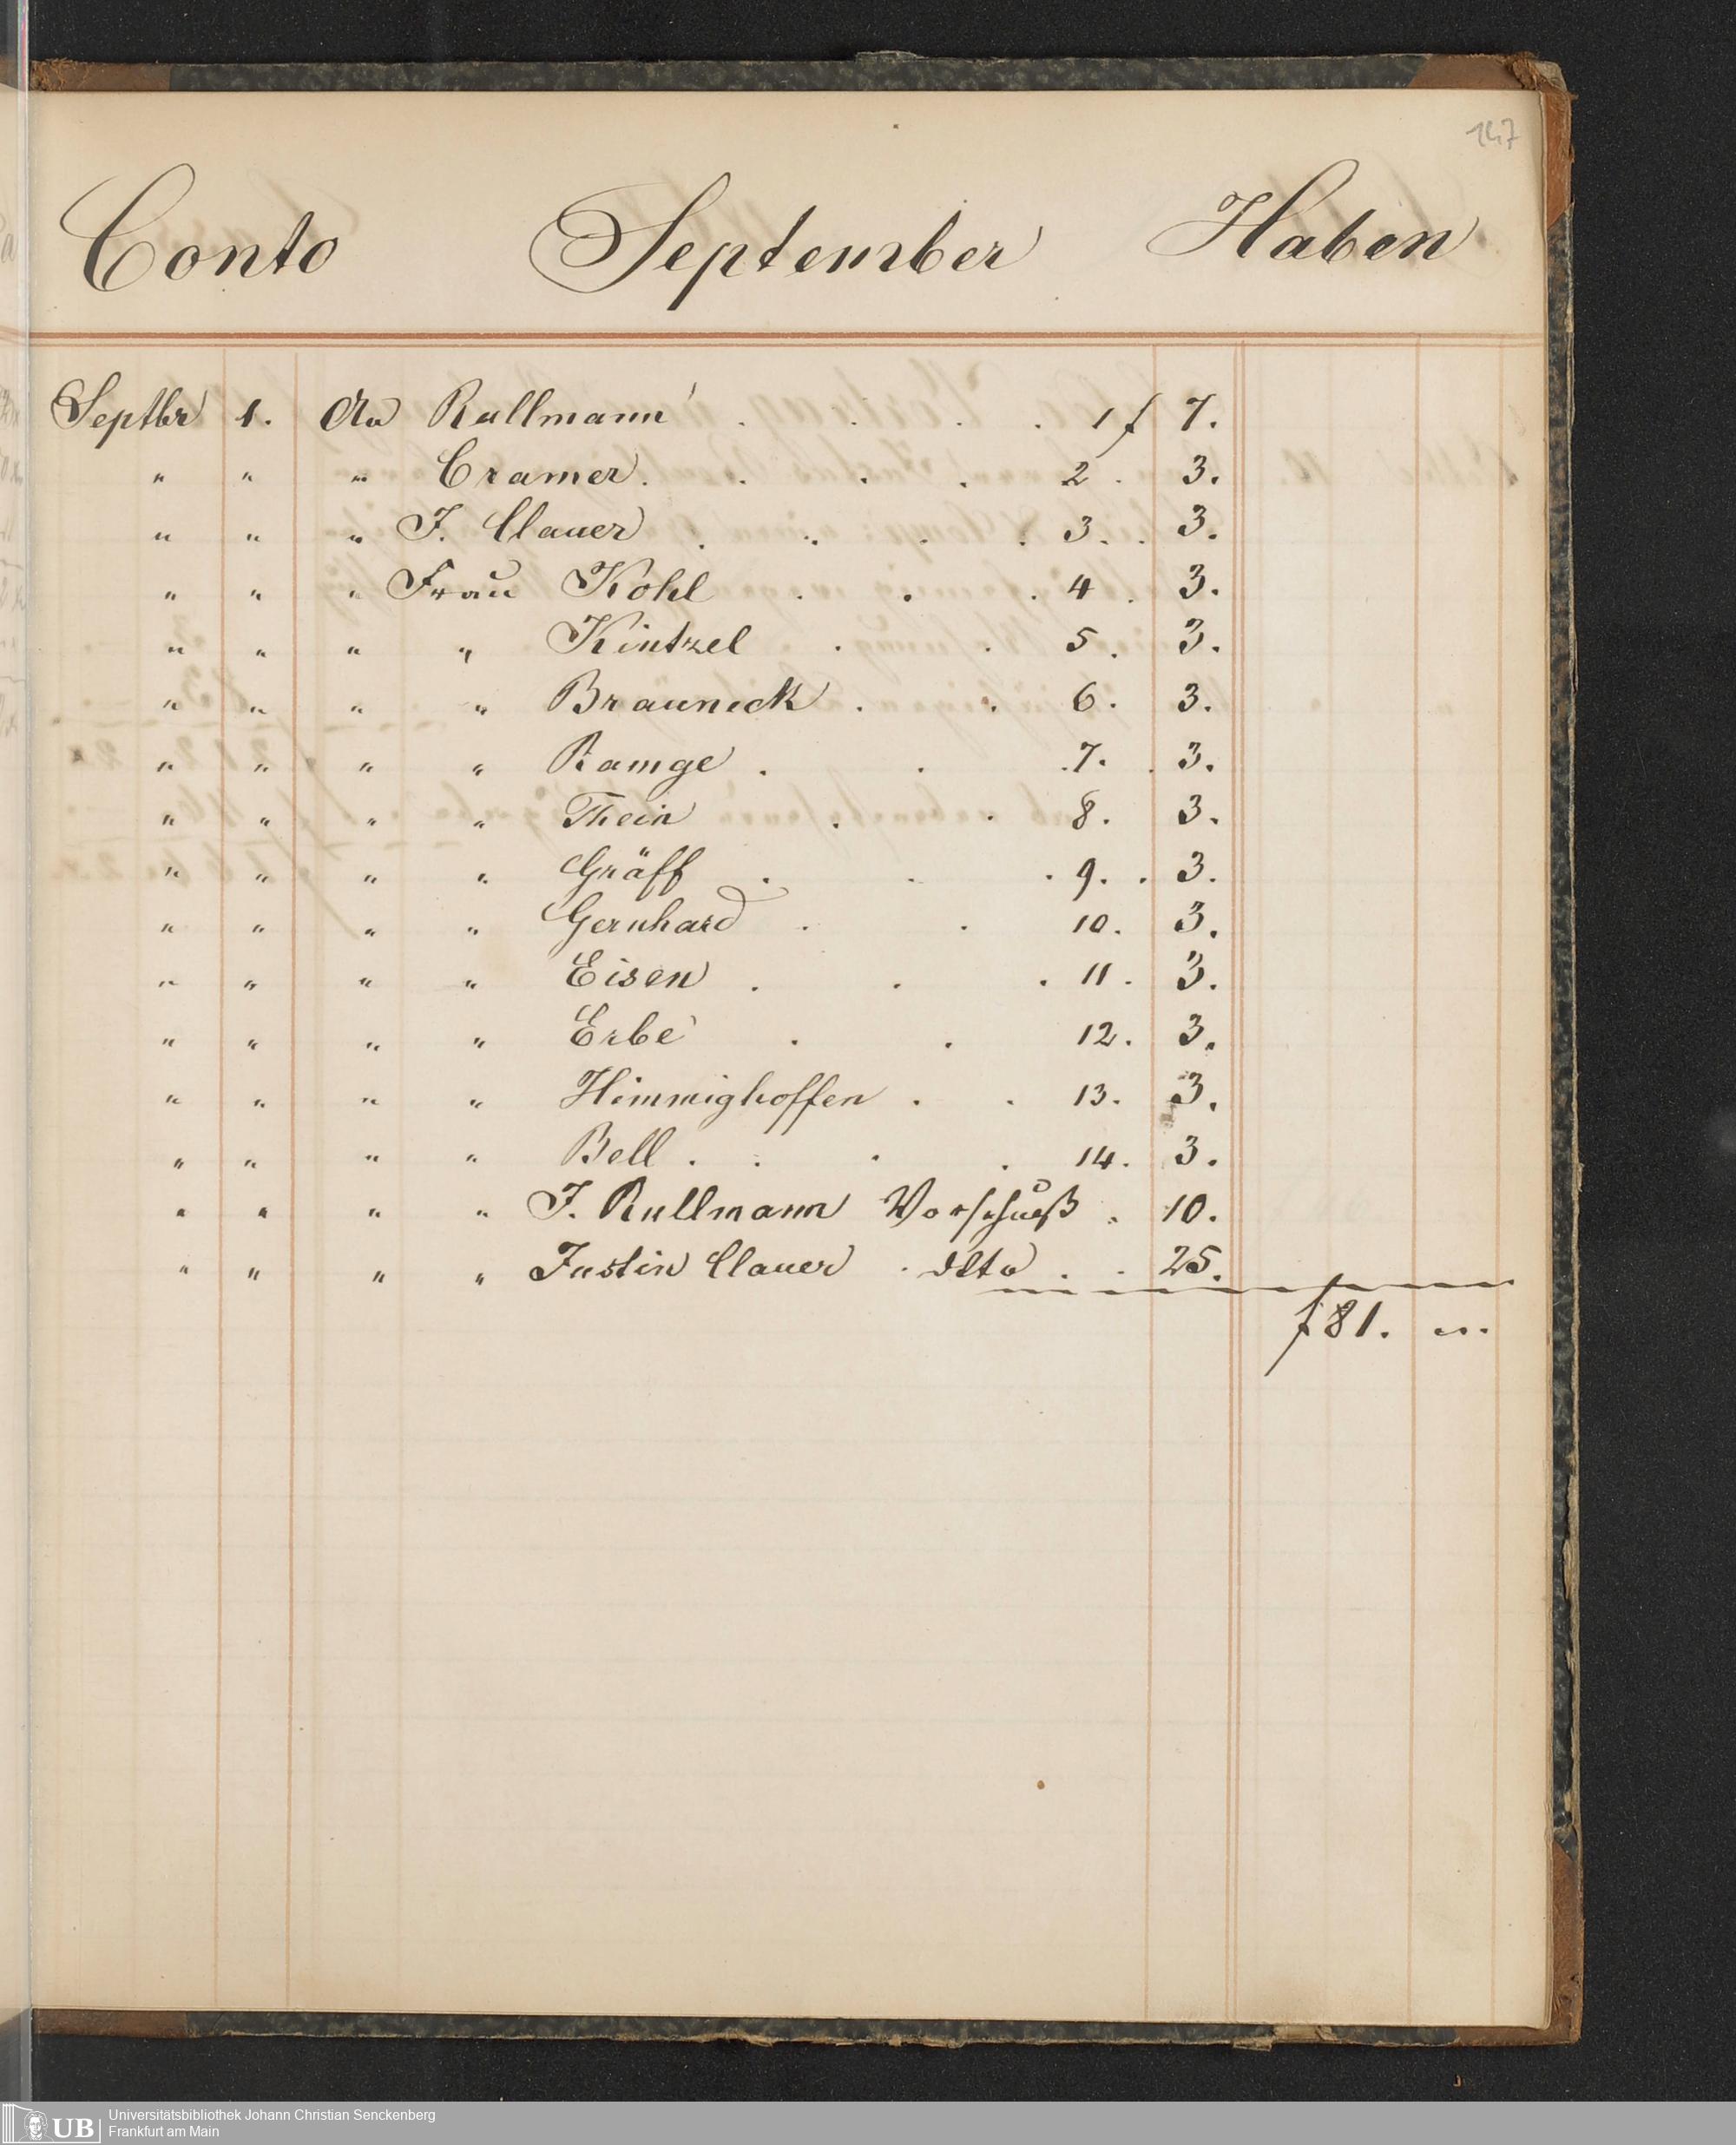 147
Conto September Haben
Septbr 1. An Rullmann . . . . 1 f 7.
" " " Cramer . . . . 2 . 3.
" " " J. Clauer . . . . 3 . . 3.
" " " Frau Kohl . . . 4 . 3.
" " " " Kintzel . . 5 . 3.
" " " " Brauneck . . 6 . 3.
" " " " Ramge . . . 7 . . 3.
" " " " Thein . . 8 . 3.
" " " " Gräff . . . 9 . . 3.
" " " " Gernhard . . 10 . 3.
" " " " Eisen . . . 11 . 3.
" " " " Erbe . . 12 . 3.
" " " " Himmighoffen . . 13 . 3.
" " " " Bell . . . . 14 . 3.
" " " " J. Rullmann Vorschuß . 10.
" " " " Justin Clauer . dito . . 25.
f 81. "
UB Universitätsbibliothek Johann Christian Senckenberg
Frankfurt am Main